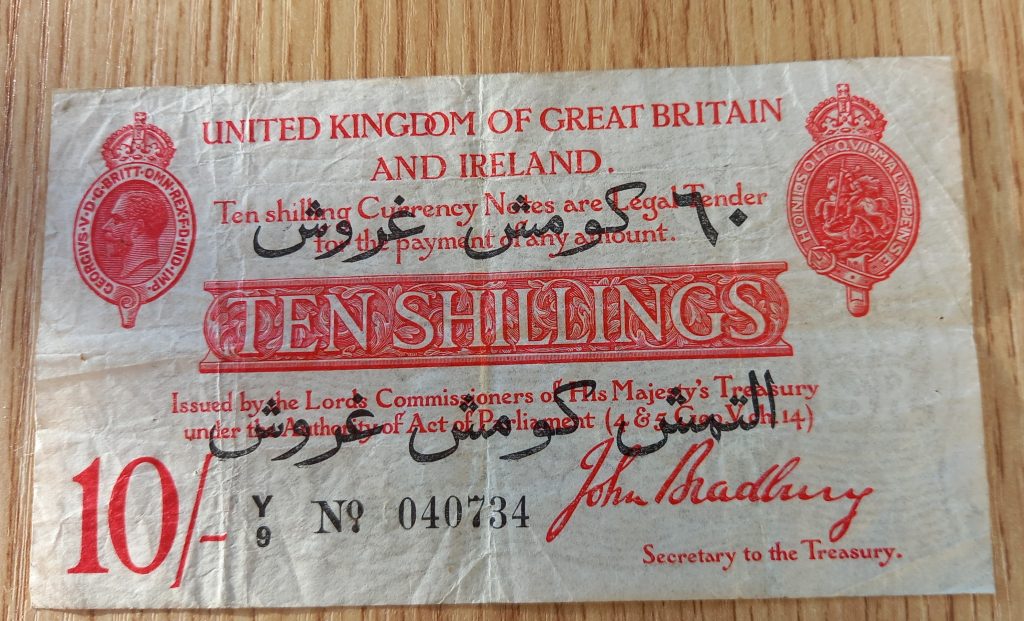 UNITED KINGDOM OF GREAT BRITAIN
AND IRELAND.
GEORGIVS·V·D·G·BRITT·OMN·REX·F·D·IND·IMP·
HONI·SOIT·QVI·MAL·Y·PENSE
Ten shilling Currency Notes are Legal Tender
for the payment of any amount.
٦٠ كومش غروش
TEN SHILLINGS
Issued by the Lords Commissioners of His Majesty's Treasury
under the Authority of Act of Parliament (4 & 5 Geo.V.ch.14)
التمش كومش غروش
10/-
Y
9
No 040734
John Bradbury
Secretary to the Treasury.